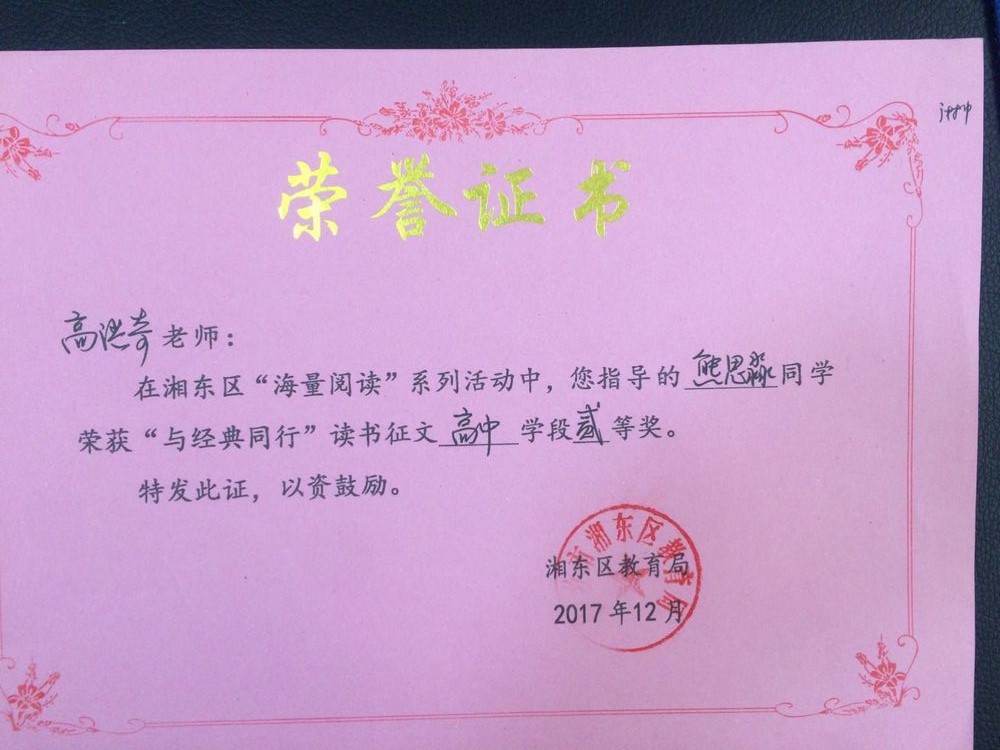 荣誉证书
高洪奇老师：
在湘东区“海量阅读”系列活动中，您指导的熊思淼同学
荣获“与经典同行”读书征文高中学段贰等奖。
特发此证，以资鼓励。
市湘东区教育局
湘东区教育局
2017年12月